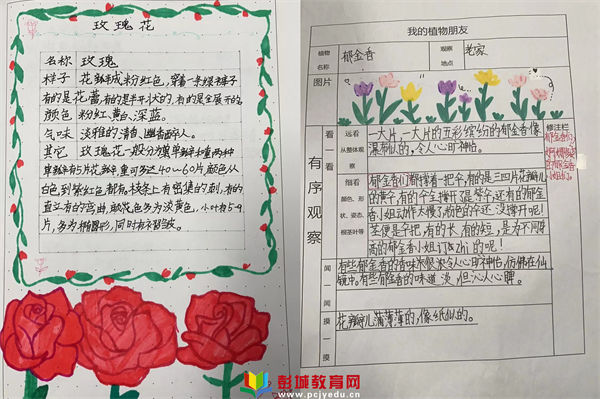 玫瑰花
名称 玫瑰
样子 花瓣成粉红色，穿着一条绿裤子
有的是花蕾，有的是半开状的，有的是全展开的。
颜色 粉红、黄白、深蓝。
气味 淡雅的清香，幽香醉人。
其它 玫瑰花一般分为单瓣和重两种
单瓣有5片花瓣，重可多达40～60片，颜色从
白色到紫红色都有，枝条上有密集的刺，有的
直立有的弯曲，瓣花色多为淡黄色，小叶有5-9
片，多为椭圆形，同时有补替皱。
我的植物朋友
植物名称 郁金香 观察地点 老家
图片
有序观察
看一看
远看 从整体观察
一大片，一大片的五彩缤纷的郁金香像
瀑布似的，令人心旷神怡。
修注栏
郁金香们
细看 颜色、形状、姿态、根茎叶等
郁金香们都撑着一把伞，有的是三四片花瓣儿
的黄伞，有的伞全撑开了是紫伞，还有的郁金
香小姐动作太慢了，粉色的伞还没撑开呢！
茎便是伞把，有的长，有的短，是为不同身
高的郁金香小姐订制zhì的呢！
闻一闻
有些郁金香的香味有很浓令人心旷神怡，仿佛在仙
镜中。有些郁金香的味道淡，但沁人心脾。
摸一摸
花瓣儿薄薄的，像纸似的。
彭城教育网
www.pcjyedu.cn